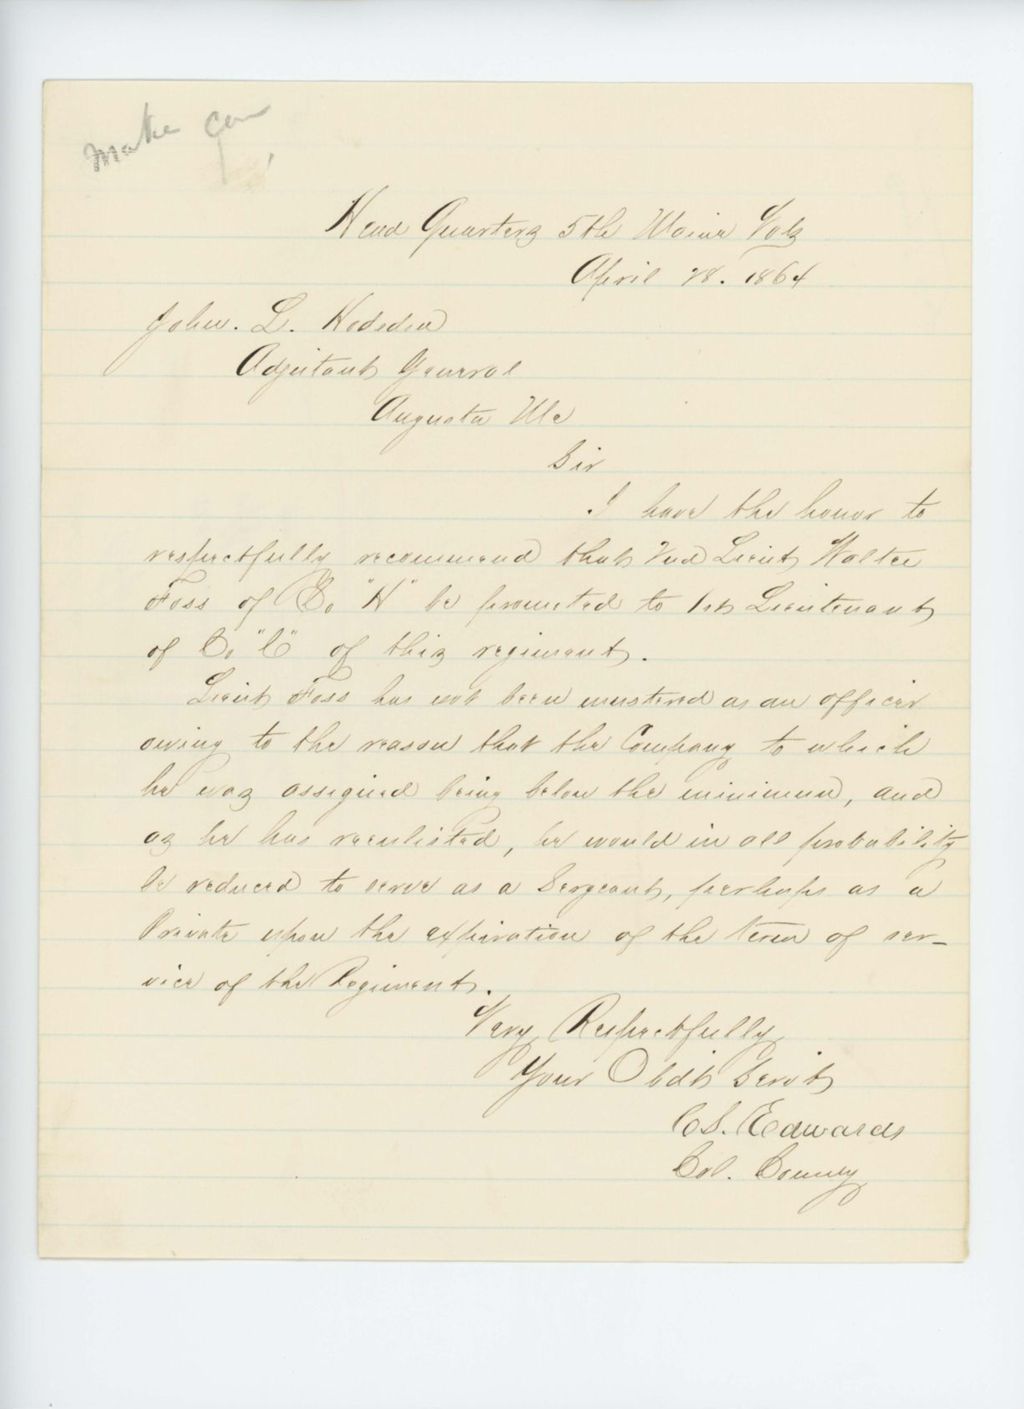 Make Com
Head Quarters 5th Maine Vols
April 28. 1864
John. L. Hodsdon
Adjutant General
Augusta Me
Sir
I have the honor to
respectfully recommend that 2nd Lieut Walter
Foss of Co "H" be promoted to 1st Lieutenant
of Co "C" of this regiment.
Lieut Foss has not been mustered as an officer
owing to the reason that the Company to which
he was assigned being below the minimum, and
as he has reenlisted, he would in all probability
be reduced to serve as a Sergeant, perhaps as a
Private upon the expiration of the term of ser-
vice of the Regiment.
Very Respectfully
Your Obdt Servt
C S. Edwards
Col. Comdg